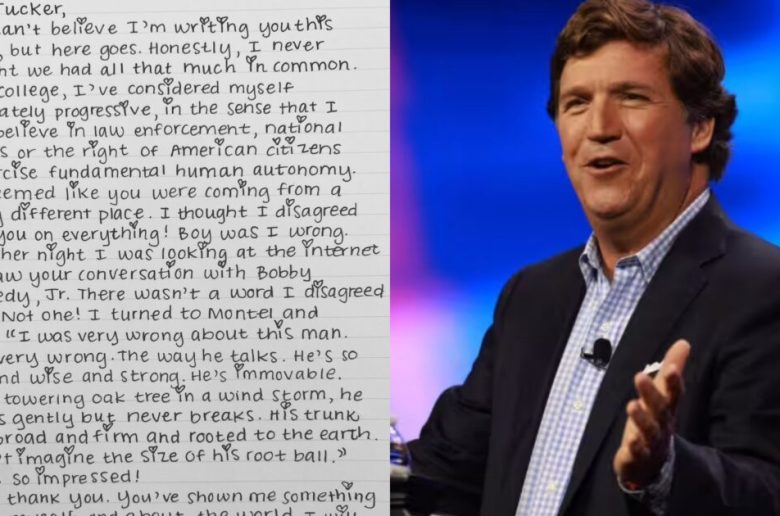 Tucker,
an't believe I'm writing you this
, but here goes. Honestly, I never
ht we had all that much in common.
college, I've considered myself
ately progressive, in the sense that I
believe in law enforcement, national
s or the right of American citizens
cise fundamental human autonomy.
eemed like you were coming from a
y different place. I thought I disagreed
you on everything! Boy was I wrong.
her night I was looking at the internet
aw your conversation with Bobby
edy, Jr. There wasn't a word I disagreed
Not one! I turned to Montel and
"I was very wrong about this man.
very wrong. The way he talks. He's so
nd wise and strong. He's immovable.
towering oak tree in a wind storm, he
s gently but never breaks. His trunk
broad and firm and rooted to the earth.
't imagine the size of his root ball."
so impressed!
thank you. You've shown me something
and about the world. I